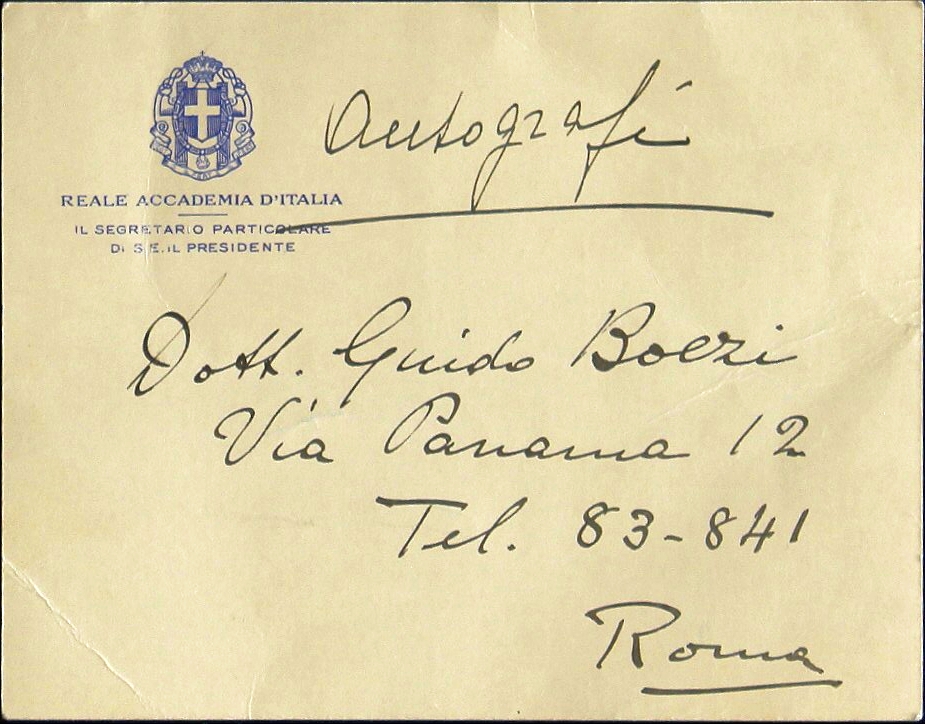 Autografi
REALE ACCADEMIA D'ITALIA
IL SEGRETARIO PARTICOLARE
DI S.E. IL PRESIDENTE
Dott. Guido Boezi
Via Panama 12
Tel. 83-841
Roma